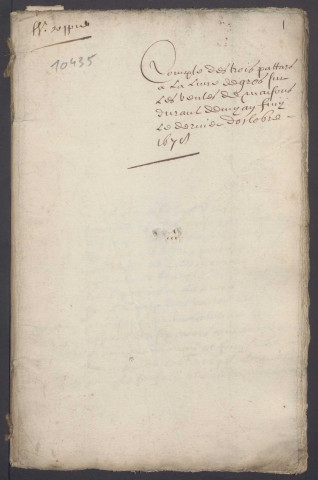 1
10435
Compte des trois pattars
a La Livre de gros sur
Les ventes des maisons
durant demy an finy
Le dernier d'octobre